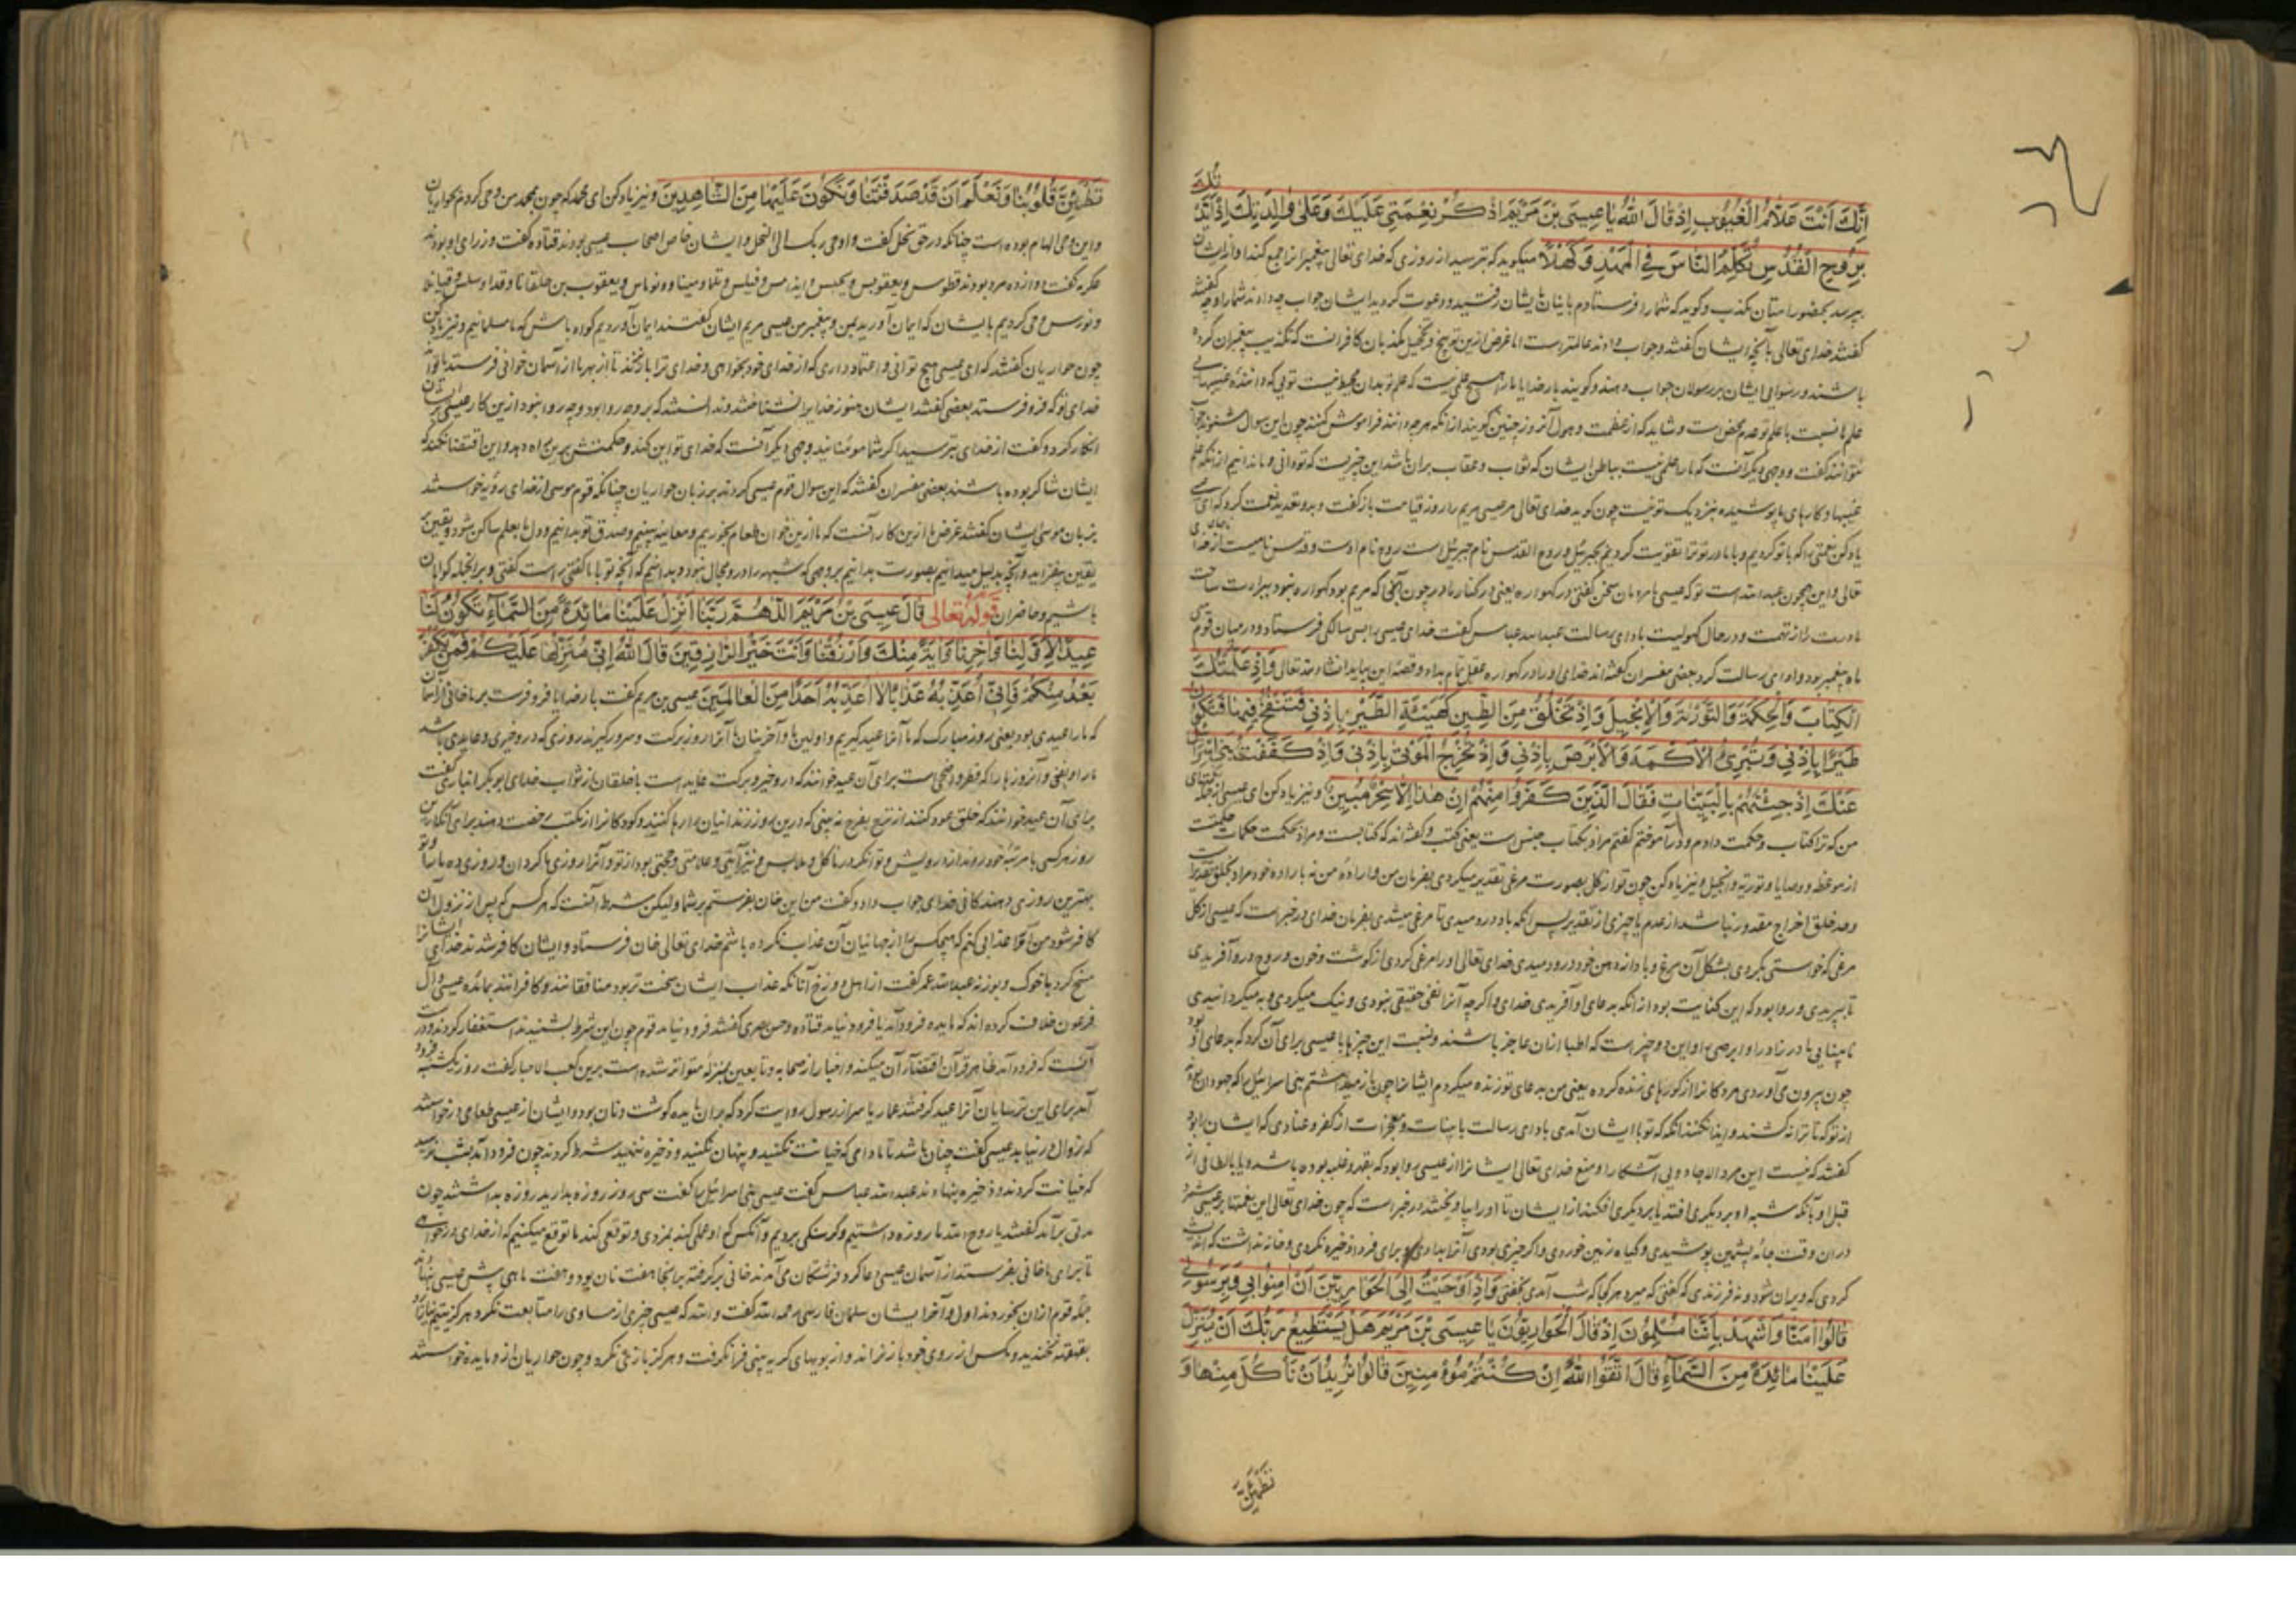 إِنَّكَ أَنْتَ عَلَّامُ الْغُيُوبِ إِذْ قَالَ اللَّهُ يَا عِيسَى بْنَ مَرْيَمَ اذْكُرْ نِعْمَتِي عَلَيْكَ وَعَلَى وَالِدَتِكَ إِذْ أَيَّدْتُكَ
بِرُوحِ الْقُدُسِ تُكَلِّمُ النَّاسَ فِي الْمَهْدِ وَكَهْلًا میکوید که بترسید از روزی که خدای تعالی پیغمبرانرا جمع کند و از ایشان
بپرسد بحضور امتان مکذب و کوید که شما را فرستادم باینان بایشان رفتید و دعوت کردید ایشان جواب چه دادند شما را و چه کفتند
کفتند خدای تعالی بآنچه ایشان کفتند و جواب دادند عالمترست اما غرض ازین توبیخ و تخجیل مکذبان کافرانست که تکذیب پیغمبران کرده
باشند و رسوایی ایشان بر رسولان جواب دهند و کویند بار خدایا ما را هیچ علمی نیست که علم تو بدان محیط نیست تویی که داننده غیبهایی
علم ما نسبت با علم تو عدم محض است و شاید که از عظمت و هول آنروز چنین کویند از انکه هرچه دانند فراموش کنند چون این سوال شنوند جواب
نتوانند کفت و وجهی دیکر آنست که ما را علمی نیست بباطن ایشان که ثواب و عقاب بران باشد این چیزیست که تو دانی و ما ندانیم از انکه علم
غیبها و کارهای پوشیده بنزدیک تونیست چون کوید خدای تعالی مر عیسی مریم را روز قیامت باز کفت و بدو تعدید نعمت کرد که ای عیسی
یاد کن نعمتی را که با تو کردیم و با مادر تو ترا تقویت کردیم بجبرئیل و روح القدس نام جبرئیل است روح نام اوست و قدس نامیست از نامهای خدای
تعالی و این همچون عبدالله است تو که عیسی با مردمان سخن کفتی در کهواره یعنی در کنار مادر چون آنجا که مریم بود کهواره نبود ببراءت ساحت
مادرت را از تهمت و در حال کهولیت بادای رسالت عبدالله عباس کفت خدای عیسی را بسی سالکی فرستاد و در میان قوم سی
ماه پیغمبر بود و ادای رسالت کرد بعضی مفسران کفته‌اند خدای او را در کهواره عقل تمام بداد و قصه این بیاید انشاء الله تعالی وَإِذْ عَلَّمْتُكَ
الْكِتَابَ وَالْحِكْمَةَ وَالتَّوْرَاةَ وَالْإِنْجِيلَ وَإِذْ تَخْلُقُ مِنَ الطِّينِ كَهَيْئَةِ الطَّيْرِ بِإِذْنِي فَتَنْفُخُ فِيهَا فَتَكُونُ
طَيْرًا بِإِذْنِي وَتُبْرِئُ الْأَكْمَهَ وَالْأَبْرَصَ بِإِذْنِي وَإِذْ تُخْرِجُ الْمَوْتَى بِإِذْنِي وَإِذْ كَفَفْتُ بَنِي إِسْرَائِيلَ
عَنْكَ إِذْ جِئْتَهُمْ بِالْبَيِّنَاتِ فَقَالَ الَّذِينَ كَفَرُوا مِنْهُمْ إِنْ هَذَا إِلَّا سِحْرٌ مُبِينٌ و نیز یاد کن ای عیسی از
من که ترا کتاب و حکمت دادم و آموختم کفتم مراد بکتاب جنس است یعنی کتب و کفته‌اند که کتابست و مراد بحکمت حکمات حکمتست
از موعظه و وصایا و توریة و انجیل و نیز یاد کن چون تو از کل بصورت مرغی تقدیر میکردی بفرمان من و اراده من نه باراده خود مراد بخلق تقدیرست
و حد خلق اخراج مقدور باشد از عدم با چیزی از تقدیر پس انکه باد درو دمیدی تا مرغی میشدی بفرمان خدای در خبر است که عیسی از کل
مرغی که خواستی بکردی بشکل آن مرغ و باد از دهن خود درو دمیدی خدای تعالی او را مرغی کردی از کوشت و خون و روح درو آفریدی
تا بپریدی و روا بود که این کنایت بود از انکه بدعای او آفریدی خدای و اکرچه آنرا نفی حقیقی نبودی و نیک میکردی و به میکردانیدی
نابینایی مادرزاد را و ابرص را و این دو چیز است که اطبا ازان عاجز باشند و نسبت این چیزها با عیسی برای آن کرد که بدعای او بود
چون بیرون می‌آوردی مردکانرا از کورهای زنده کرده یعنی من بدعای تو زنده میکردم ایشانرا چون باز میداشتم بنی اسرائیل را که جهودان بودند
از تو که تا ترا نکشند و ایذا نکنند انکه که تو با ایشان آمدی بادای رسالت با بینات و معجزات از کفر و عنادی که ایشانرا بود
کفتند که نیست این مرد الا جادویی آشکارا و منع خدای تعالی ایشانرا از عیسی روا بود که بقهر و غلبه بوده باشد و یا بالطافی از
قبل او بآنکه شبه او بر دیکری افتد یا بر دیکری افکند از ایشان تا او را بیاویختند در خبر است که چون خدای تعالی این نعمتها بر عیسی شمرد
دران وقت جامه پشمین پوشیدی و کیاه زمین خوردی و اکر چیزی بودی آنرا بدادی و برای فردا ذخیره نکردی و خانه نداشت که
کردی که ویران شود و نه فرزندی که کفتی که میرد هر کجا که شب آمدی بخفتی وَإِذْ أَوْحَيْتُ إِلَى الْحَوَارِيِّينَ أَنْ آمِنُوا بِي وَبِرَسُولِي
قَالُوا آمَنَّا وَاشْهَدْ بِأَنَّنَا مُسْلِمُونَ إِذْ قَالَ الْحَوَارِيُّونَ يَا عِيسَى بْنَ مَرْيَمَ هَلْ يَسْتَطِيعُ رَبُّكَ أَنْ يُنَزِّلَ
عَلَيْنَا مَائِدَةً مِنَ السَّمَاءِ قَالَ اتَّقُوا اللَّهَ إِنْ كُنْتُمْ مُؤْمِنِينَ قَالُوا نُرِيدُ أَنْ نَأْكُلَ مِنْهَا وَ
تَطْمَئِنَّ
تَطْمَئِنَّ قُلُوبُنَا وَنَعْلَمَ أَنْ قَدْ صَدَقْتَنَا وَنَكُونَ عَلَيْهَا مِنَ الشَّاهِدِينَ و نیز یاد کن ای محمد که چون من وحی کردم بحواریان
و این وحی الهام بوده است چنانکه در حق نحل کفت و اوحی ربک الی النحل و ایشان خاص اصحاب عیسی بودند قتاده کفت وزرای او بودند
عکرمه کفت دوازده مرد بودند قطوس و یعقوبس و یحبس و و فیلبس و و یعقوب بن حلقا تا و
و وحی کردیم بایشان که ایمان آورید بمن و پیغمبر من عیسی مریم ایشان کفتند ایمان آوردیم کواه باش که ما مسلمانیم و نیز یاد کن
چون حواریان کفتند که ای عیسی هیچ توانی و اعتماد داری که از خدای خود بخواهی و خدای ترا اجابت کند تا از بهر ما از آسمان خوانی فرستد
خدای تو که فرو فرستد بعضی کفتند ایشان هنوز خدایرا نشناختند و ندانستند که برو چه روا بود و چه روا نبود ازین کار عیسی بر ایشان
انکار کرد و کفت از خدای بترسید اکر شما مومنانید وجهی دیکر آنست که خدای تو این کند و حکمتش برین راه دهد و این اقتضا نکند که
ایشان شاکر بوده باشند بعضی مفسران کفتند که این سوال قوم عیسی کردند بر زبان حواریان چنانکه قوم موسی از خدای رؤیة خواستند
بزبان موسی ایشان کفتند غرض ما ازین کار آنست که ما ازین خوان طعام بخوریم و معاینه ببینیم و صدق تو بدانیم و دل ما بعلم ساکن شود و یقین
یقین بیفزاید و آنچه بدلیل میدانیم بصورت بدانیم بر وجهی که شبهه را درو مجال نبود و بدانیم که آنچه تو با ما کفتی راست کفتی و بر انجمله کواهان
باشیم و حاضران قوله تعالی قَالَ عِيسَى بْنُ مَرْيَمَ اللَّهُمَّ رَبَّنَا أَنْزِلْ عَلَيْنَا مَائِدَةً مِنَ السَّمَاءِ تَكُونُ لَنَا
عِيدًا لِأَوَّلِنَا وَآخِرِنَا وَآيَةً مِنْكَ وَارْزُقْنَا وَأَنْتَ خَيْرُ الرَّازِقِينَ قَالَ اللَّهُ إِنِّي مُنَزِّلُهَا عَلَيْكُمْ فَمَنْ يَكْفُرْ
بَعْدُ مِنْكُمْ فَإِنِّي أُعَذِّبُهُ عَذَابًا لَا أُعَذِّبُهُ أَحَدًا مِنَ الْعَالَمِينَ عیسی بن مریم کفت بار خدایا فرو فرست بر ما خانی از آسمان
که ما را عیدی بود یعنی روز مبارک که ما آنرا عید کیریم و اولین ما و آخرینان ما آنرا روز برکت و سرور کیرند روزی که درو خیری و عایدی باشد
ما را و و آنروزها را که فطر و اضحی است برای آن عید خوانند که درو خیر و برکت عاید است با خلقان از ثواب خدای ابو بکر انباری کفت
برای آن عید خوانند که خلق عود کنند از ترح بفرح نه بینی که درین روز زندانیانرا رها کنند و کودکانرا از مکتب رخصت دهند برای آنکه درین
روز هر کسی با مرتبه خود روند از درویش و توانکر در ماکل و ملابس و نیز آیتی و علامتی و حجتی بود از تو و آنرا روزی ما کردان و روزی ده ما را و تو
بهترین روزی دهندکانی خدای جواب داد و کفت من این خان بفرستم بر شما ولیکن بشرط آنست که هر کس که پس از نزول آن
کافر شود من او را عذابی کنم که هیچکس را از جهانیان آن عذاب نکرده باشم خدای تعالی خان فرستاد و ایشان کافر شدند خدای ایشانرا
مسخ کرد با خوک و بوزنه عبدالله عمر کفت از اهل دوزخ آنانکه عذاب ایشان سخت تر بود منافقانند و کافرانند بمائده عیسی و آل
فرعون خلاف کرده‌اند که مایده فرود آمد یا فرود نیامد قتاده و حسن بصری کفتند فرود نیامد قوم چون این شرط بشنیدند استغفار کردند و درست
آنست که فرود آمد ظاهر قرآن اقتضای آن میکند و اخبار از صحابه و تابعین بمنزله متواتر شده است برین کعب الاحبار کفت روز یکشنبه فرود
آمد برای این ترسایان آنرا عید کرفتند عمار یاسر از رسول روایت کرد که بران مایده کوشت و نان بود و ایشان از عیسی طعامی درخواستند
که زوال درنیابد عیسی کفت چنان باشد تا مادامی که خیانت نکنید و پنهان نکنید و ذخیره ننهید شرط کردند چون فرود آمد بشب نرسید
که خیانت کردند و ذخیره بنهادند عبدالله عباس کفت عیسی بنی اسرائیل را کفت سی روز روزه بدارید روزه بداشتند چون
مدتی برآمد کفتند یا روح الله ما روزه داشتیم و کرسنکی بردیم و آنکس که او عملی کند بمزدی و توقعی کند ما توقع میکنیم که از خدای درخواهی
تا برای ما خانی بفرستد از آسمان عیسی دعا کرد فرشتکان می‌آمدند خانی برکرفته بر آنجا هفت نان بود و هفت ماهی پیش عیسی بنهادند
جمله قوم ازان بخوردند اول و آخر ایشان سلمان فارسی رحمه الله کفت والله که عیسی چیزی از مساوی را متابعت نکرد هرکز یتیم نیازرد
بقهقهه نخندید و مکس از روی خود باز نراند و از بویهای کریه بینی فرانکرفت و هرکز بازی نکرد و چون حواریان ازو مایده خواستند